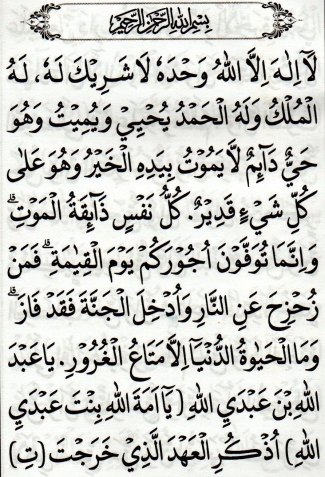 بِسْمِ اللهِ الرَّحْمٰنِ الرَّحِيْمِ
لَآ اِلٰهَ اِلَّا اللهُ وَحْدَهٗ لَا شَرِيْكَ لَهٗ، لَهُ
الْمُلْكُ وَلَهُ الْحَمْدُ يُحْيِيْ وَيُمِيْتُ وَهُوَ
حَيٌّ دَآئِمٌ لَا يَمُوْتُ بِيَدِهِ الْخَيْرُ وَهُوَ عَلٰى
كُلِّ شَيْءٍ قَدِيْرٌ. كُلُّ نَفْسٍ ذَآئِقَةُ الْمَوْتِۗ
وَاِنَّمَا تُوَفَّوْنَ اُجُوْرَكُمْ يَوْمَ الْقِيٰمَةِۗ فَمَنْ
زُحْزِحَ عَنِ النَّارِ وَاُدْخِلَ الْجَنَّةَ فَقَدْ فَازَۗ
وَمَا الْحَيٰوةُ الدُّنْيَآ اِلَّا مَتَاعُ الْغُرُوْرِ. يَا عَبْدَ
اللهِ بْنَ عَبْدَيِ اللهِ (يَآ اَمَةَ اللهِ بِنْتَ عَبْدَيِ
اللهِ) اُذْكُرِ الْعَهْدَ الَّذِيْ خَرَجْتَ (تِ)